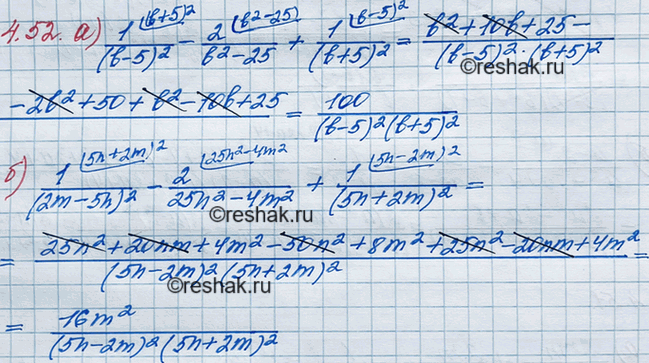 4.52. а) 1^{(b+5)^2}/(b-5)^2 - 2^{(b^2-25)}/b^2-25 + 1^{(b-5)^2}/(b+5)^2 = b^2+10b+25-/(b-5)^2·(b+5)^2
-2b^2+50+b^2-10b+25 = 100/(b-5)^2(b+5)^2
б) 1^{(5n+2m)^2}/(2m-5n)^2 - 2^{(25n^2-4m^2}/25n^2-4m^2 + 1^{(5n-2m)^2}/(5n+2m)^2 =
©reshak.ru
= 25n^2+20nm+4m^2-50n^2+8m^2+25n^2-20nm+4m^2/(5n-2m)^2(5n+2m)^2 =
= 16m^2/(5n-2m)^2(5n+2m)^2
©reshak.ru